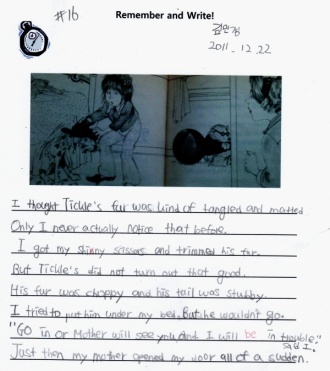 #16
Remember and Write!
김민정
2011. 12. 22
I thought Tickle's fur was kind of tangled and matted
Only I never actually notice that before.
I got my shinny scissors and trimmed his fur.
But Tickle's did not turn out that good.
His fur was choppy and his tail was stubby.
I tried to put him under my bed. But he wouldn't go.
"Go in or Mother will see you. And I will be in trouble," said I.
Just then my mother opened my door all of a sudden.